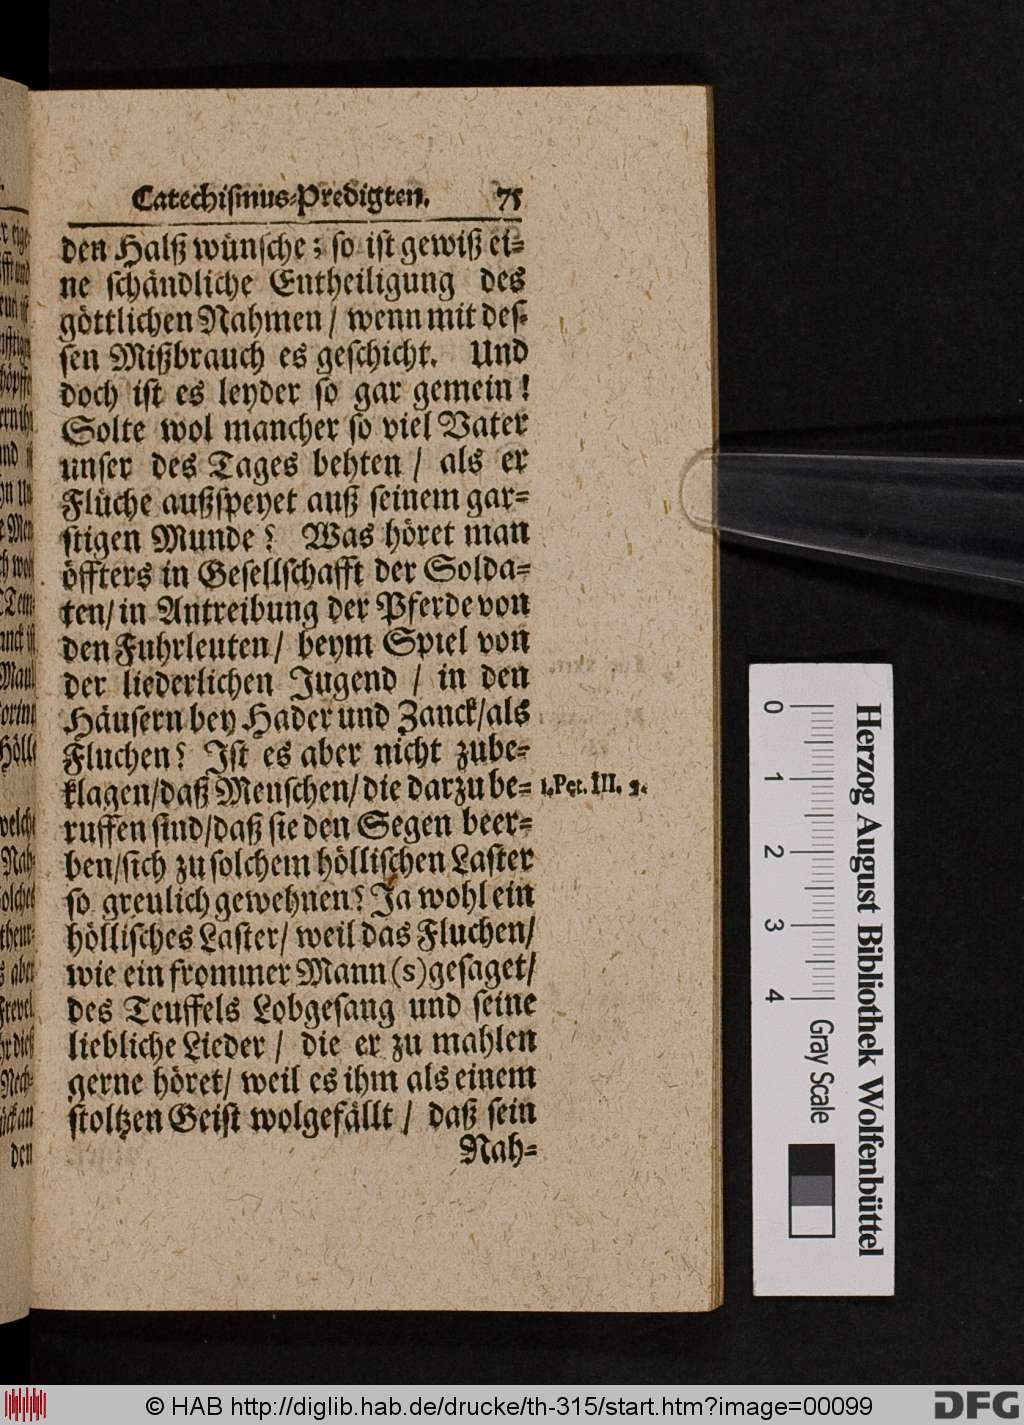 Catechiſmus-Predigten. 75
den Halß wünſche; ſo iſt gewiß ei-
ne ſchändliche Entheiligung des
göttlichen Nahmen / wenn mit deſ-
ſen Mißbrauch es geſchicht. Und
doch iſt es leyder ſo gar gemein!
Solte wol mancher ſo viel Vater
unſer des Tages behten / als er
Flüche außſpeyet auß ſeinem gar-
ſtigen Munde? Was höret man
öffters in Geſellſchafft der Solda-
ten/ in Antreibung der Pferde von
den Fuhrleuten/ beym Spiel von
der liederlichen Jugend / in den
Häuſern bey Hader und Zanck/als
Fluchen? Iſt es aber nicht zube-
klagen/daß Menſchen/ die darzu be- 1.Pet. III. 9.
ruffen ſind/daß ſie den Segen beer-
ben/ſich zu ſolchem hölliſchen Laſter
ſo greulich gewehnen? Ja wohl ein
hölliſches Laſter/ weil das Fluchen/
wie ein frommer Mann (s) geſaget/
des Teuffels Lobgeſang und ſeine
liebliche Lieder / die er zu mahlen
gerne höret/ weil es ihm als einem
ſtoltzen Geiſt wolgefällt / daß ſein
Nah-
0 1 2 3 4
Gray Scale
Herzog August Bibliothek Wolfenbüttel
© HAB http://diglib.hab.de/drucke/th-315/start.htm?image=00099
DFG